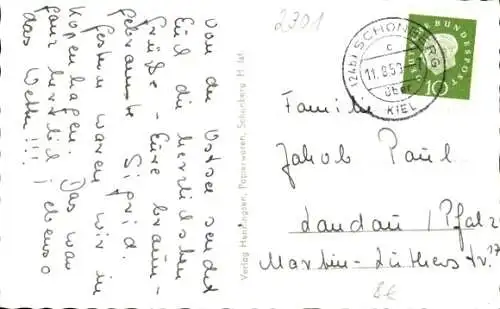 Von der Ostsee sendet
Euch die herzlichsten
Grüße - Eure braun-
gebrannte Sigrid.
Gestern waren wir in
Kopenhagen. Das war
ganz herrlich, ebenso
das Wetter!!!
Verlag Henningsen, Papierwaren, Schönberg H
2301
(24b) SCHÖNBERG
c
11.8.59
über
KIEL
DEUTSCHE BUNDESPOST
10
Familie
Jakob Paul
Landau / Pfalz
Martin-Luther-Str. 17